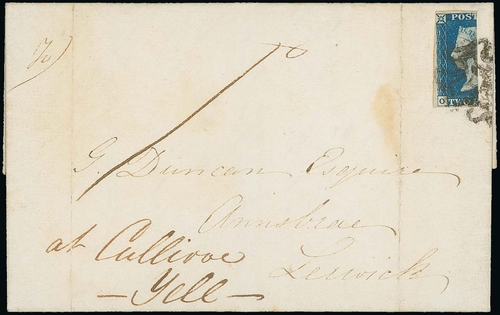 POST
O TW
G. Duncan Esquire
Annsbrae
Lerwick
at Cullivoe
— Yell —